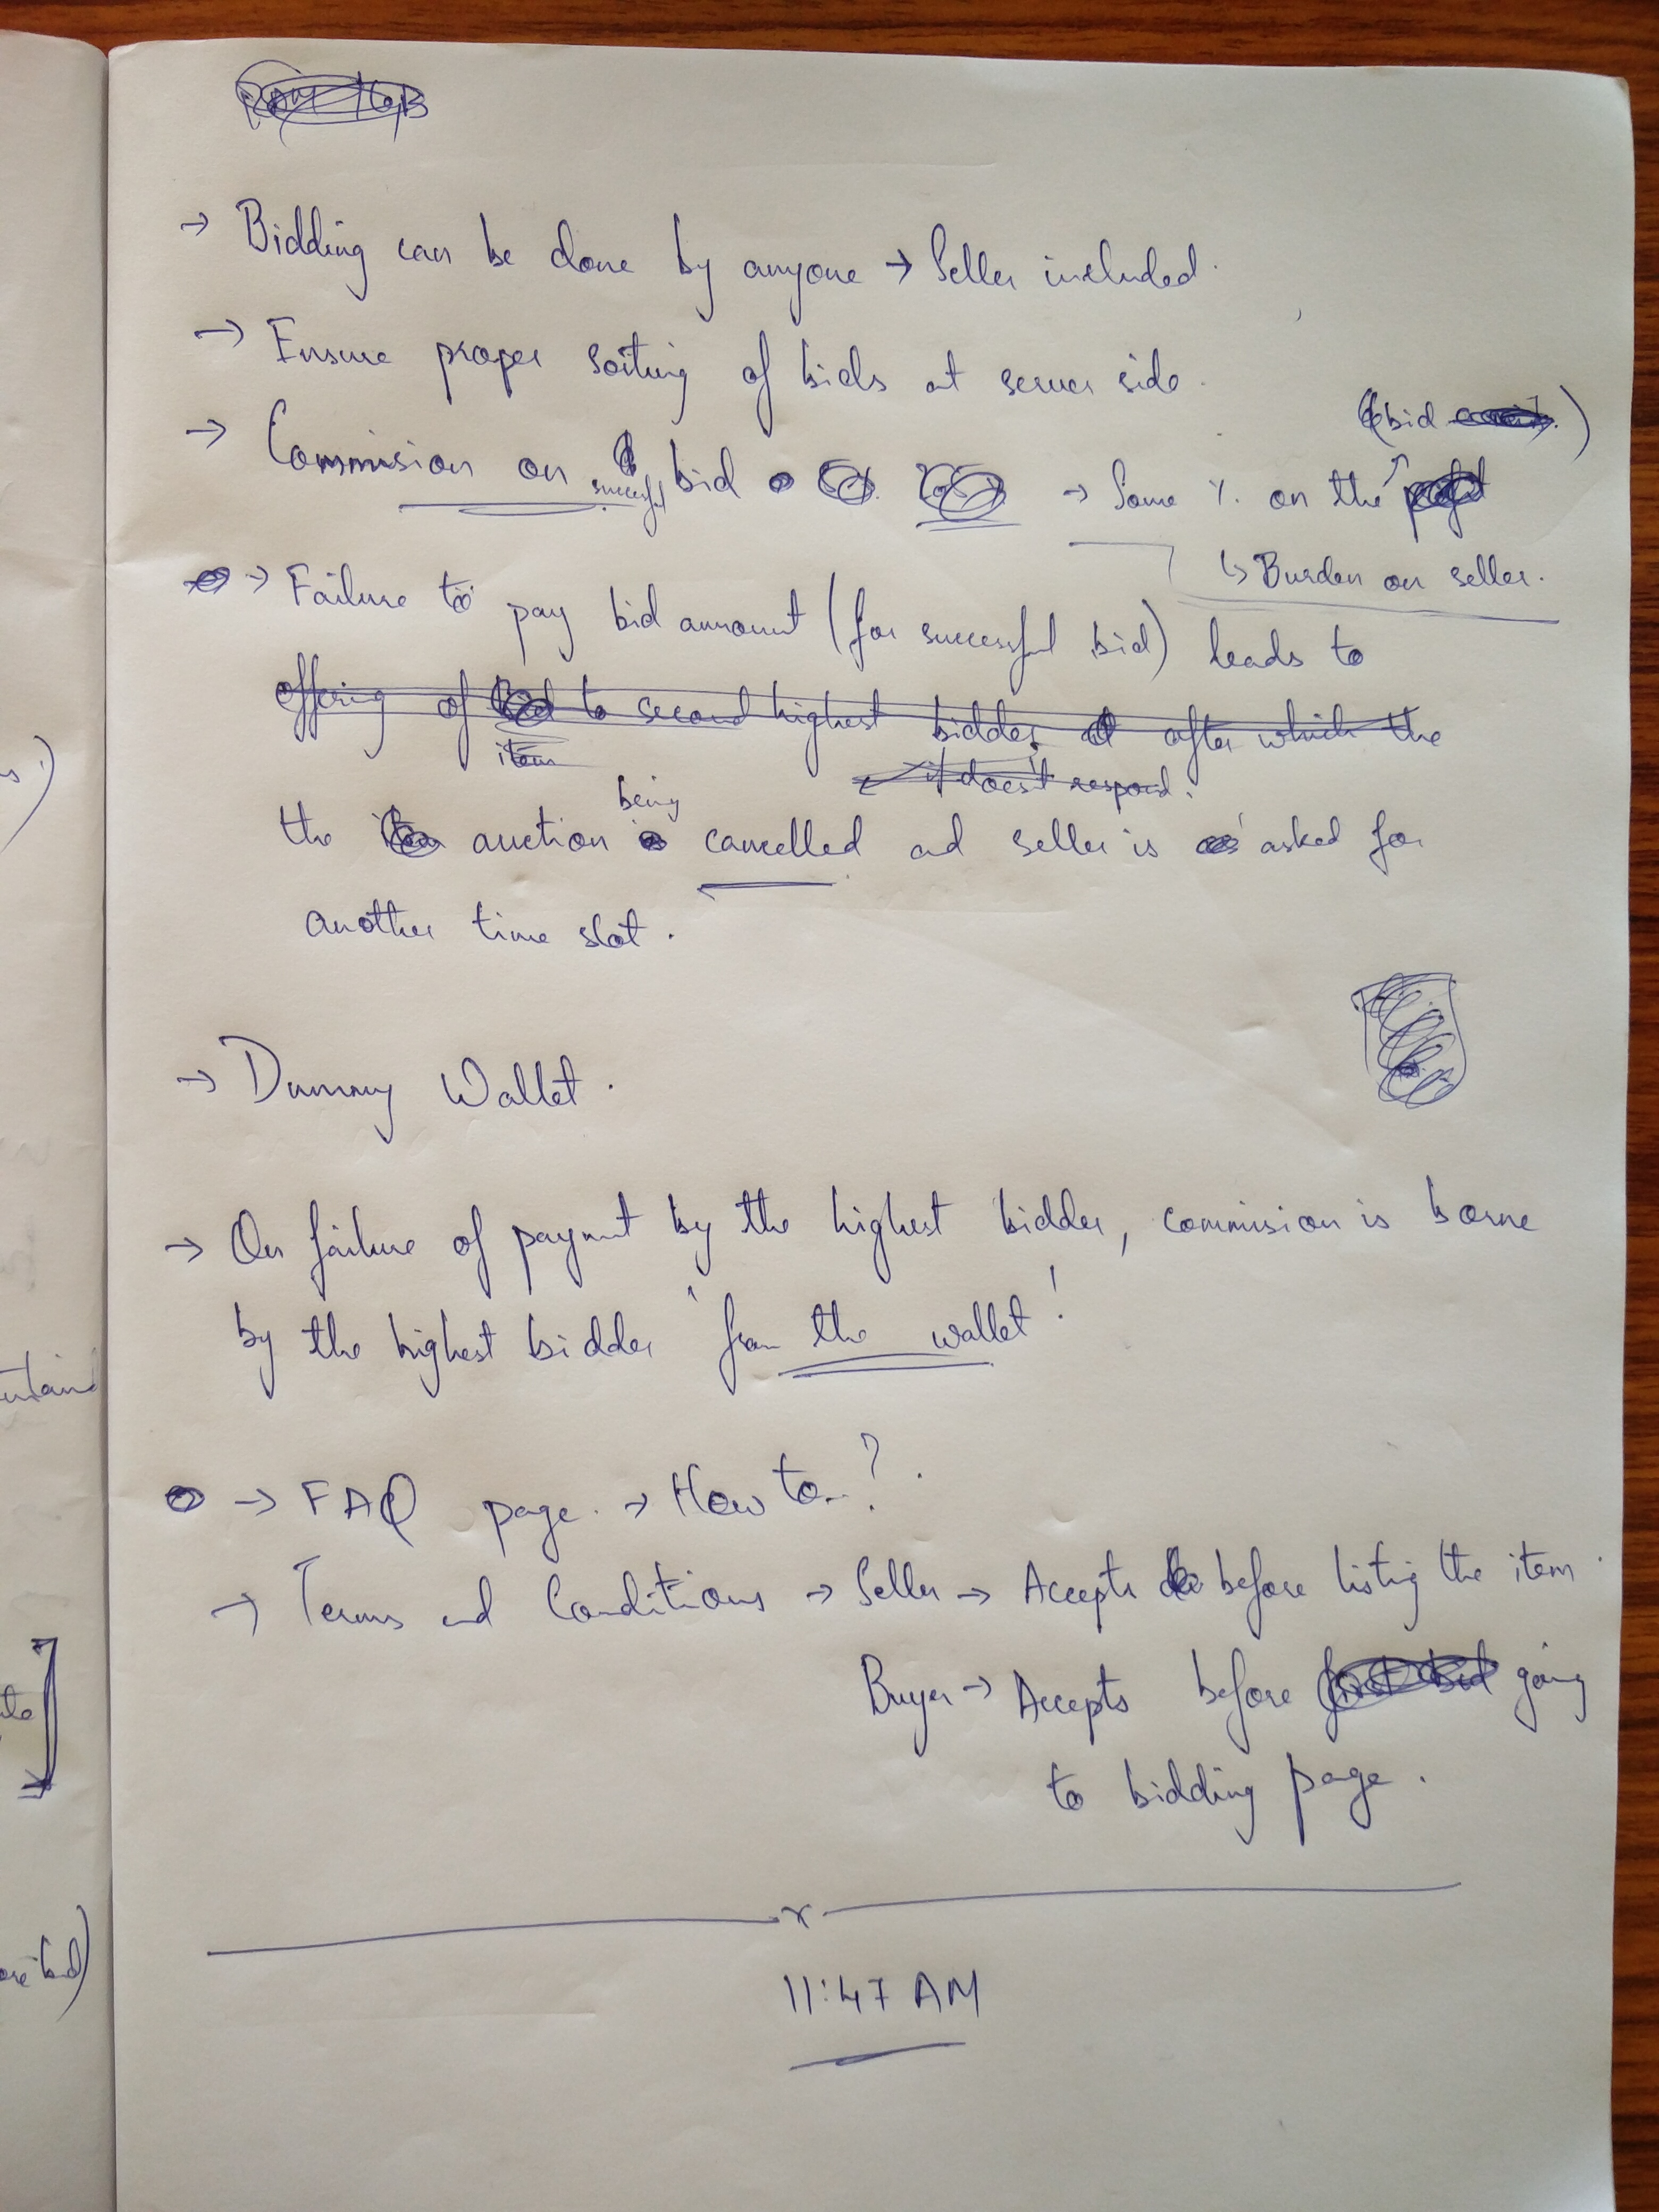 → Bidding can be done by anyone → Seller included.
→ Ensure proper sorting of bids at server side.
(bid )
→ Commision on successful bid → Some % on the
↳ Burden on seller.
→ Failure to pay bid amount (for successful bid) leads to
offering of to second highest bidder, after which the
item
if doesn't respond.
being
the auction cancelled and seller is asked for
another time slot.
→ Dummy Wallet.
→ On failure of payment by the highest bidder, commision is borne
by the highest bidder 'from the wallet'
→ FAQ page. → How to..?
→ Terms and Conditions → Seller → Accepts before listing the item.
Buyer → Accepts before going
to bidding page.
x
11:47 AM